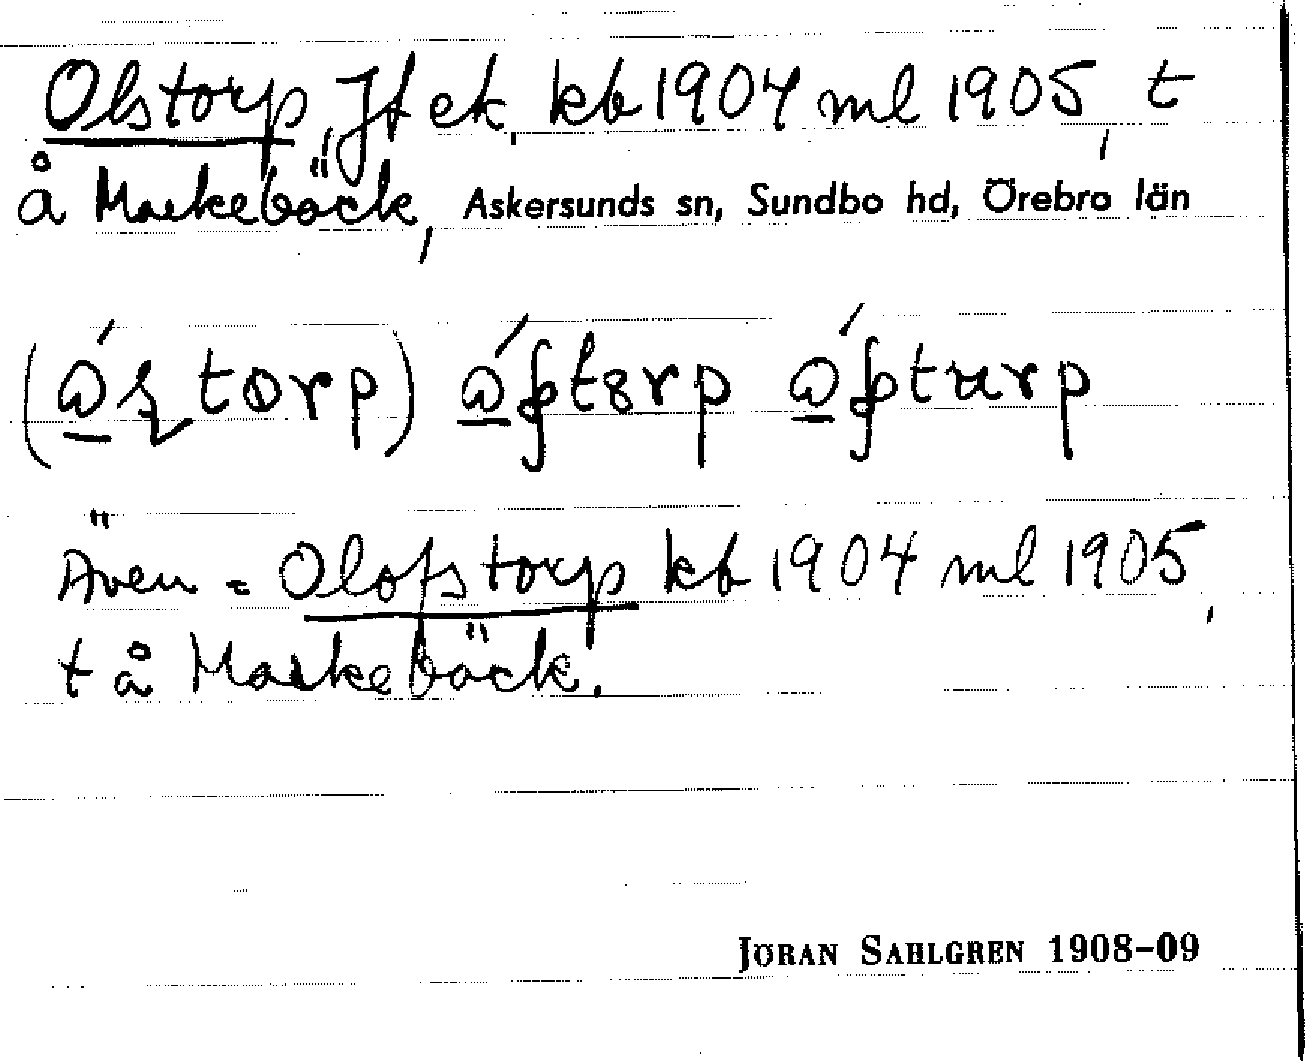 Olstorp, Jf ek. kb 1904 ml 1905, t
å Markebäck, Askersunds sn, Sundbo hd, Örebro län
Även = Olofstorp kb 1904 ml 1905,
t å Markebäck.
JÖRAN SAHLGREN 1908–09